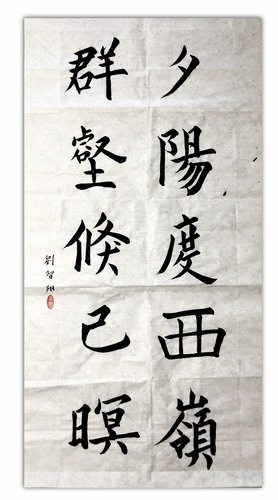 夕陽度西嶺
群壑倏已暝
劉智翔